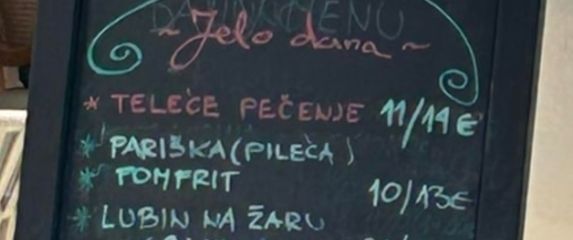 ~ Jelo dana ~
* TELEĆE PEČENJE 11/14€
* PARIŠKA (PILEĆA)
* POMFRIT 10/13€
* LUBIN NA ŽARU